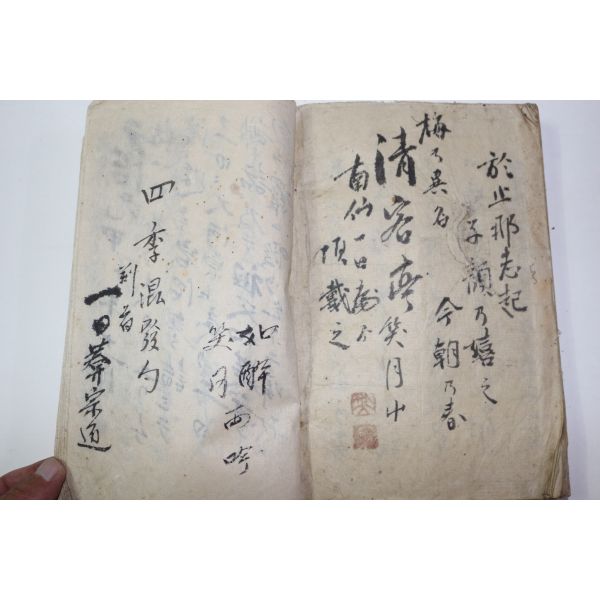 於止那志起
子顔乃嬉之
今朝乃春
梅乃異名
清客亭笑月
南仙一日
頂戴之
如醉西吟
笑月
四季混發句
判者
一日葊宗道